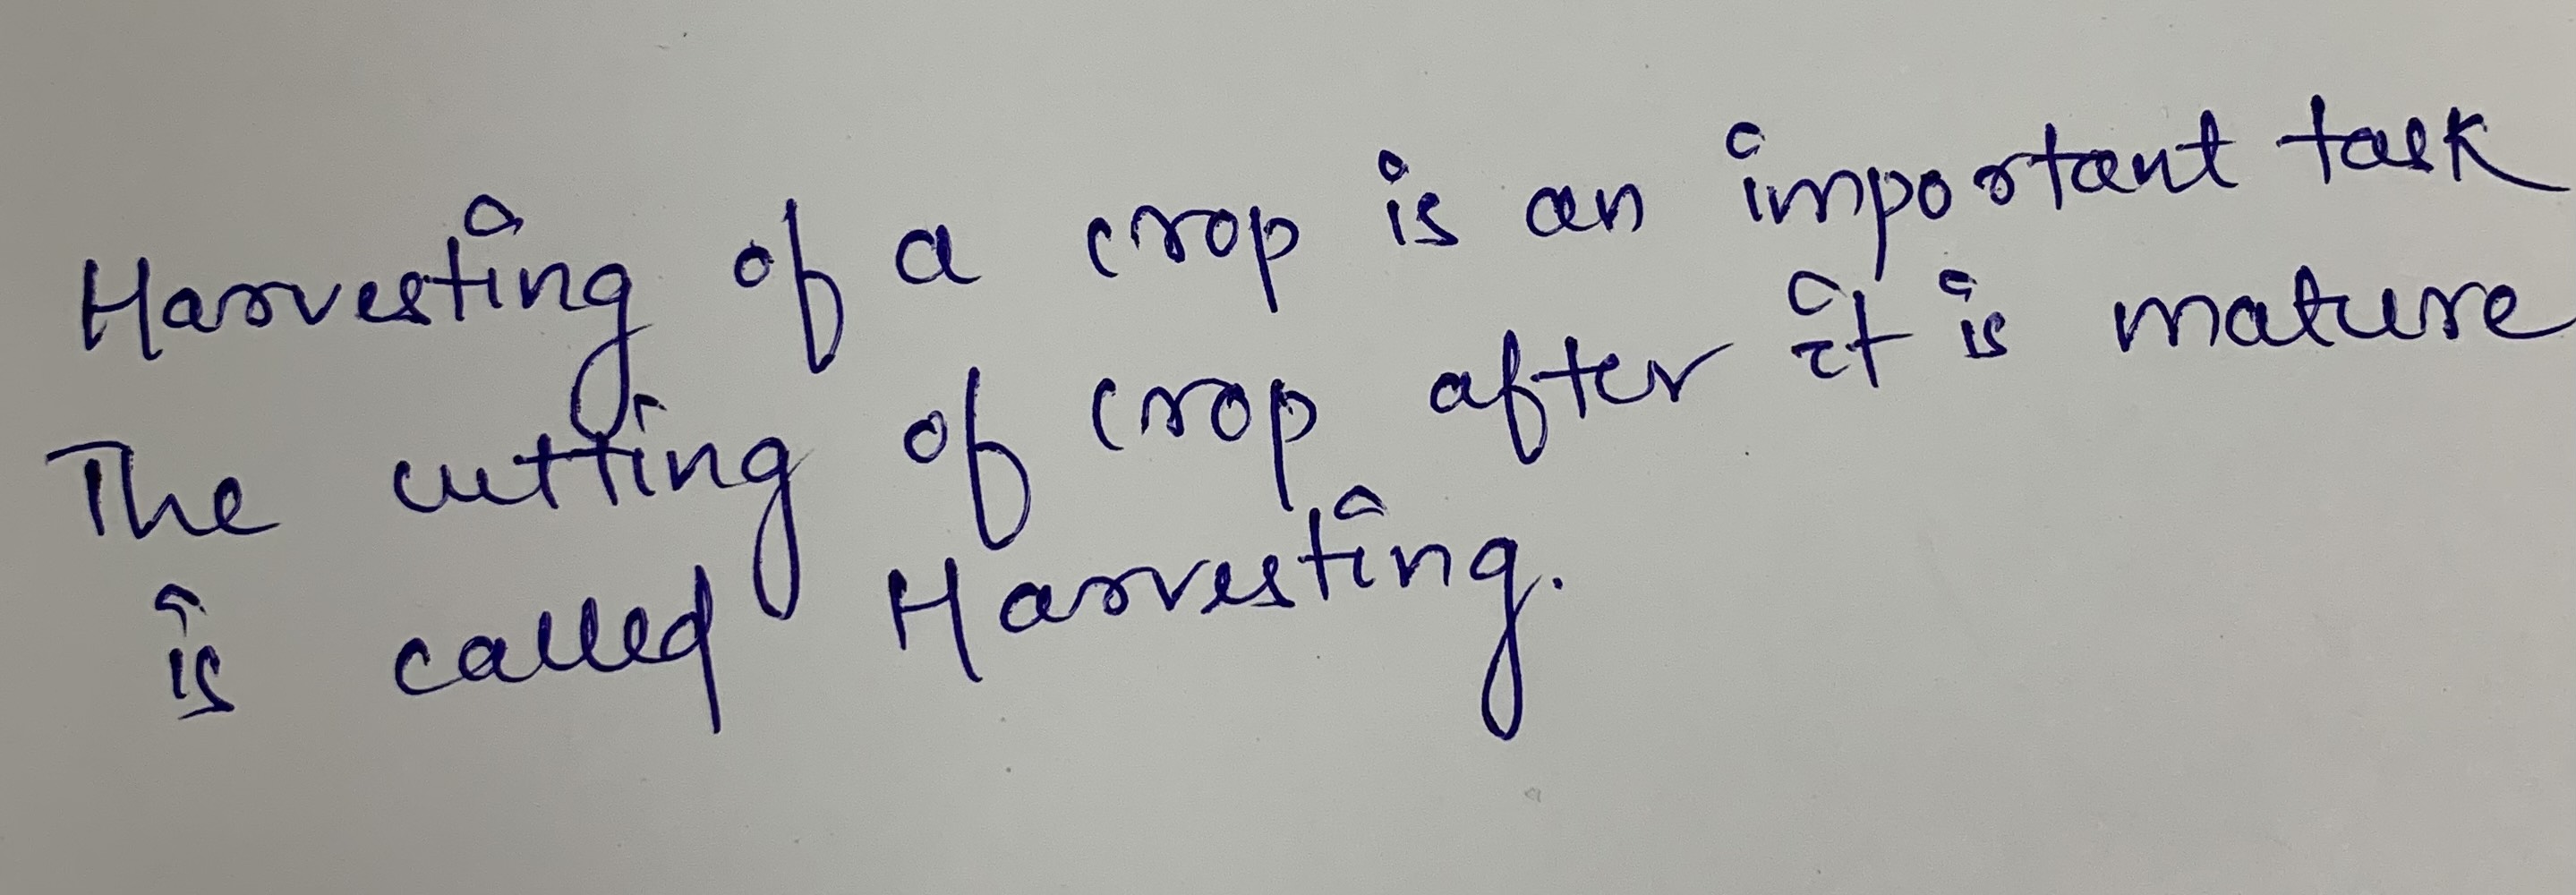 Harvesting of a crop is an important task
The cutting of crop after it is mature
is called Harvesting.